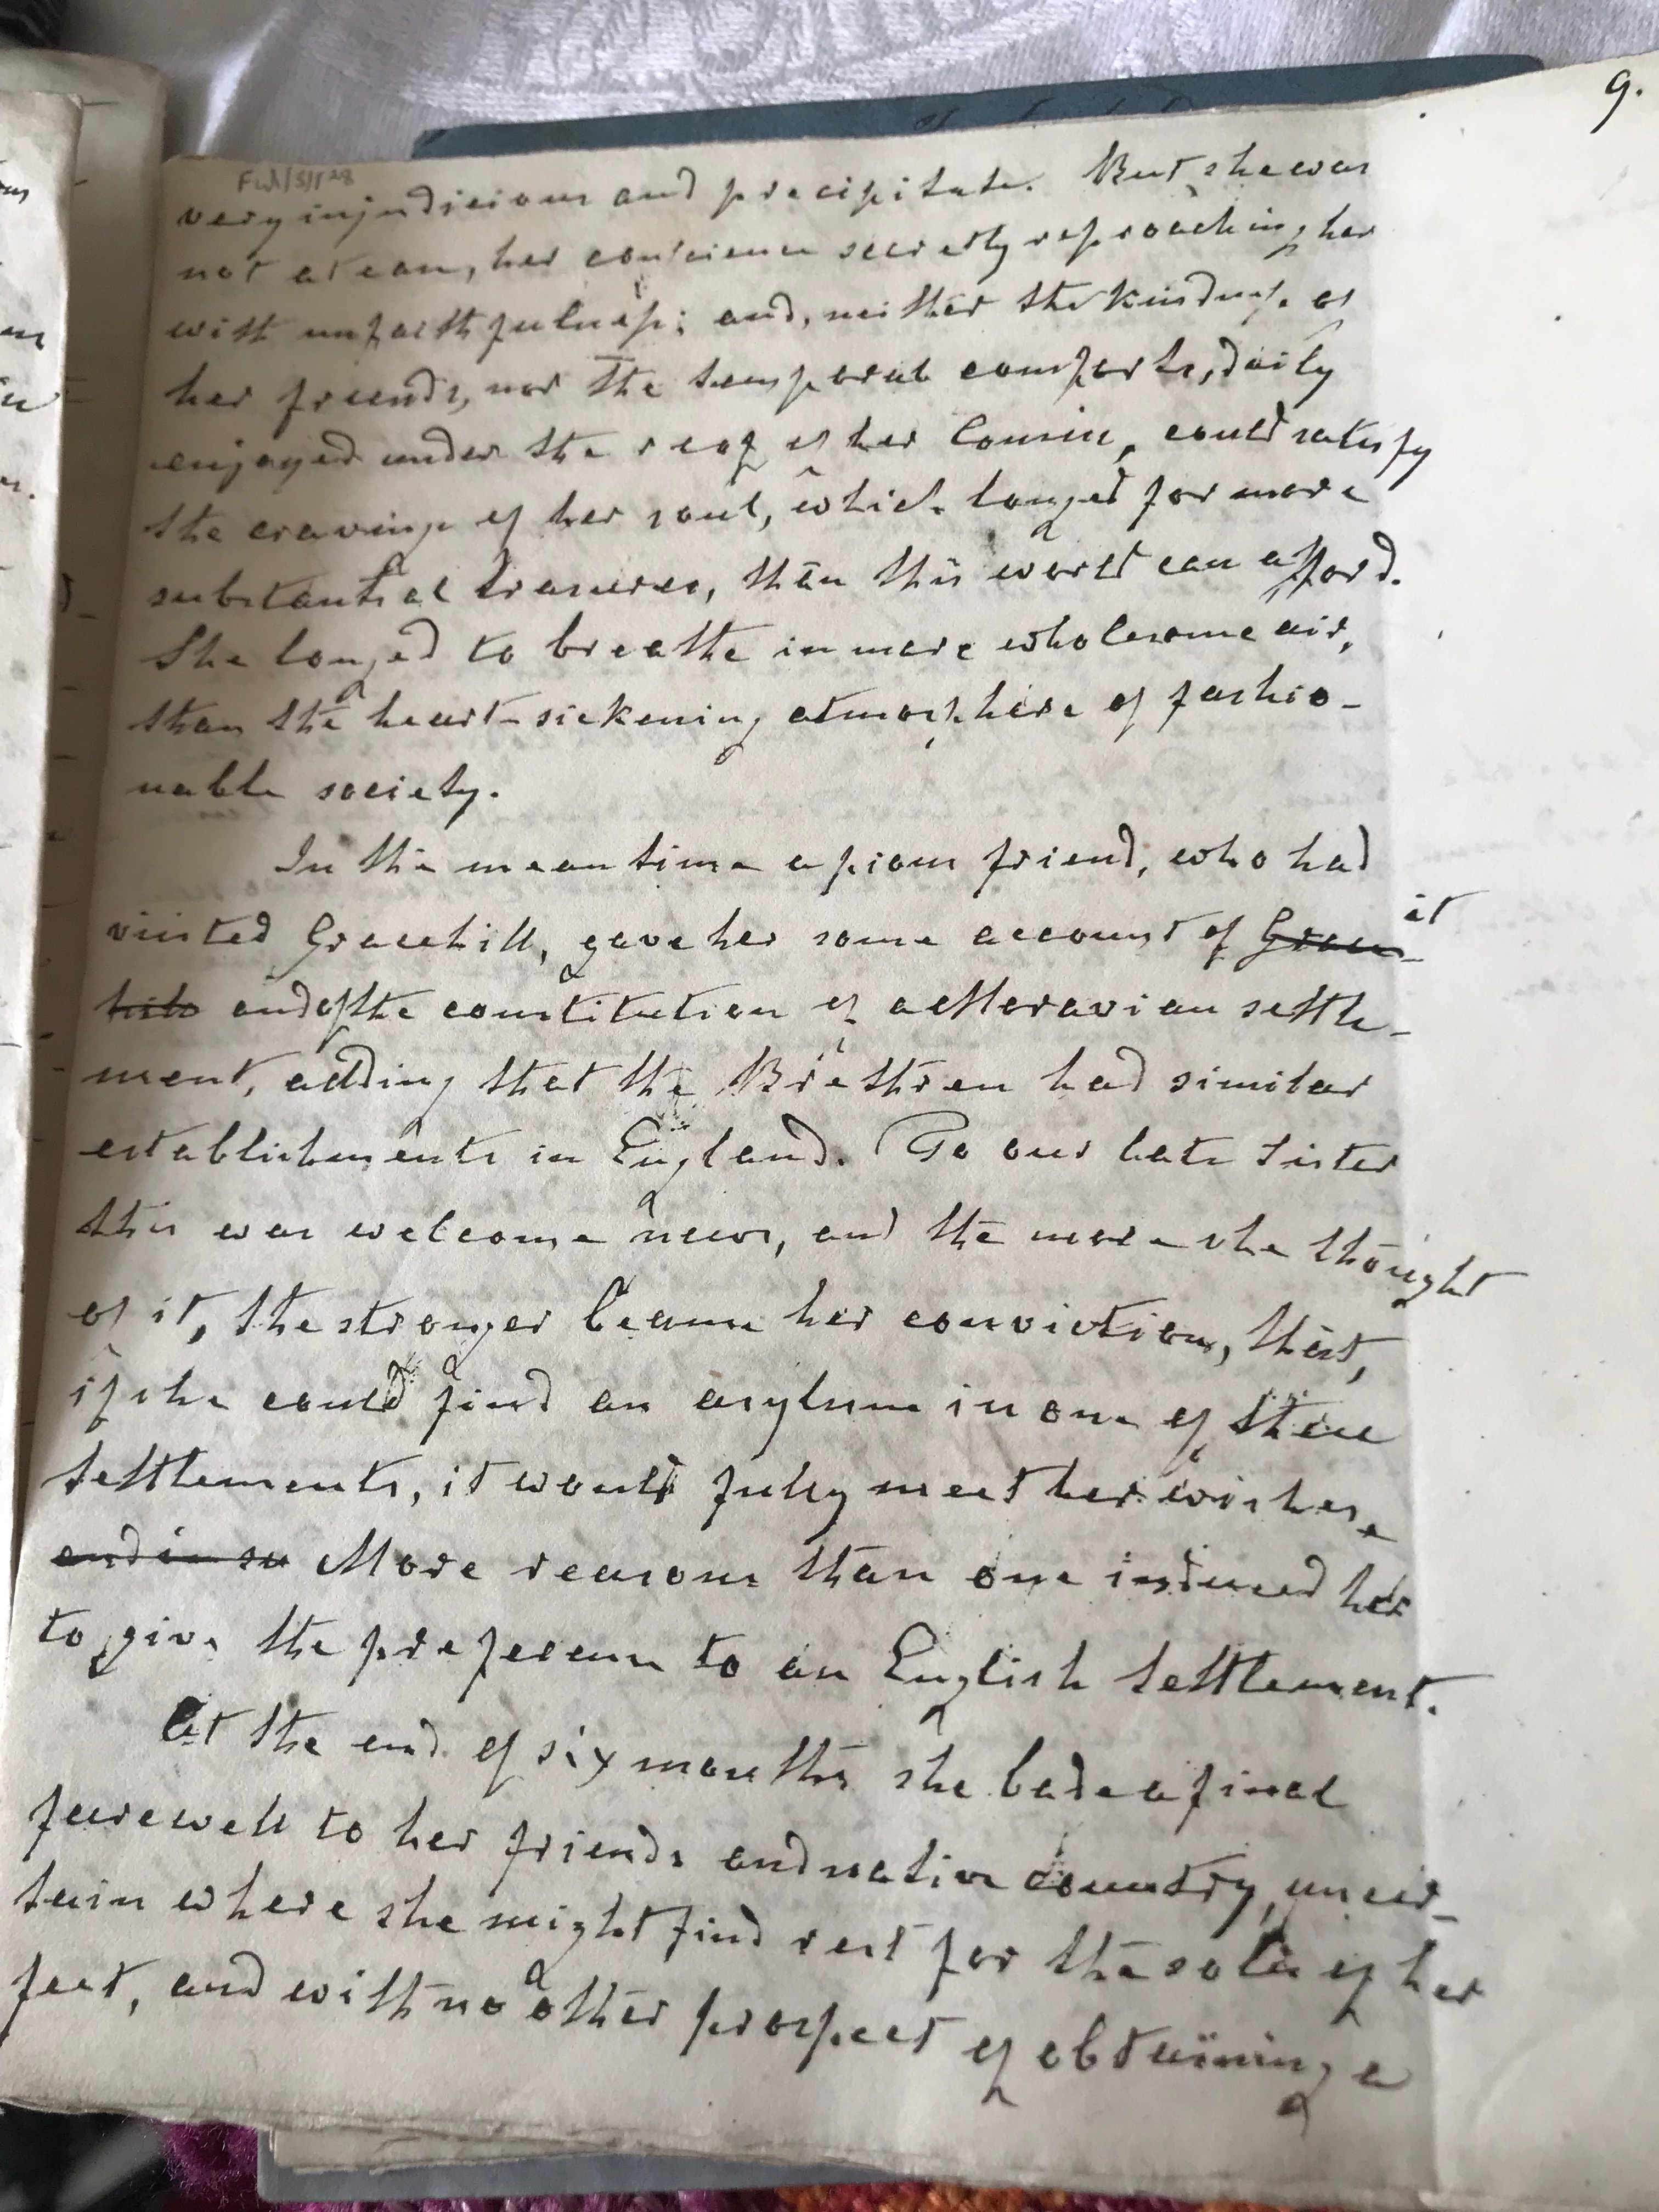 9.
very injudicious and precipitate. But she was
not at ease, her conscience secretly reproaching her
with unfaithfulness; and, neither the kindness of
her friends, nor the temporal comforts, daily
enjoyed under the roof of her Cousin, could satisfy
the cravings of her soul, which longed for more
substantial treasures, than this world can afford.
She longed to breathe in more wholesome air,
than the heart-sickening atmosphere of fashio-
nable society.
In the mean time a pious friend, who had
visited Gracehill, gave her some account of Grace- it
hill and of the constitution of a Moravian settle-
ment, adding that the Brethren had similar
establishments in England. To our late Sister
this was welcome news, and the more she thought
of it, the stronger became her conviction, that,
if she could find an asylum in one of these
Settlements, it would fully meet her wishes.
and in so More reasons than one induced her
to give the preference to an English Settlement.
At the end of six months she bade a final
farewell to her friends and native country, uncer-
tain where she might find rest for the soles of her
feet, and with no other prospect of obtaining a